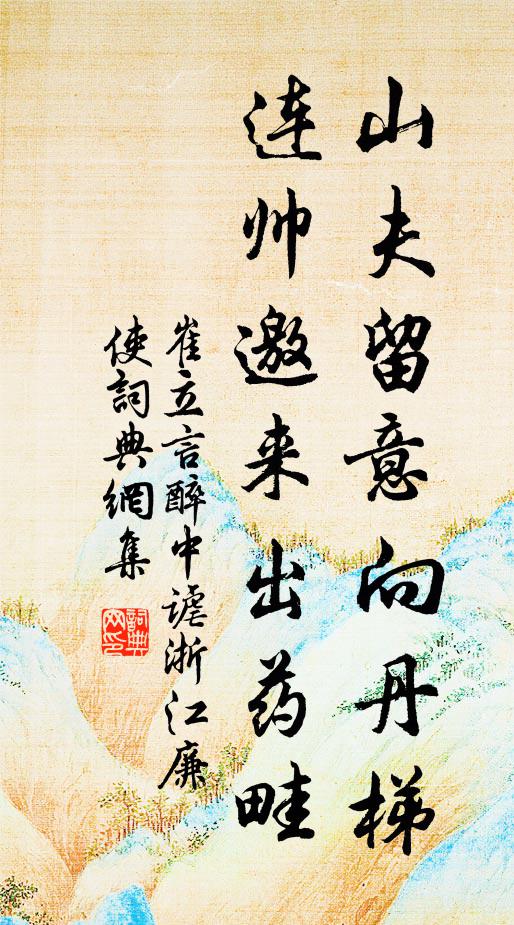 山夫留意向丹梯
连帅邀来出药畦
崔立言醉中谑浙江廉
使詞典網集
詞典